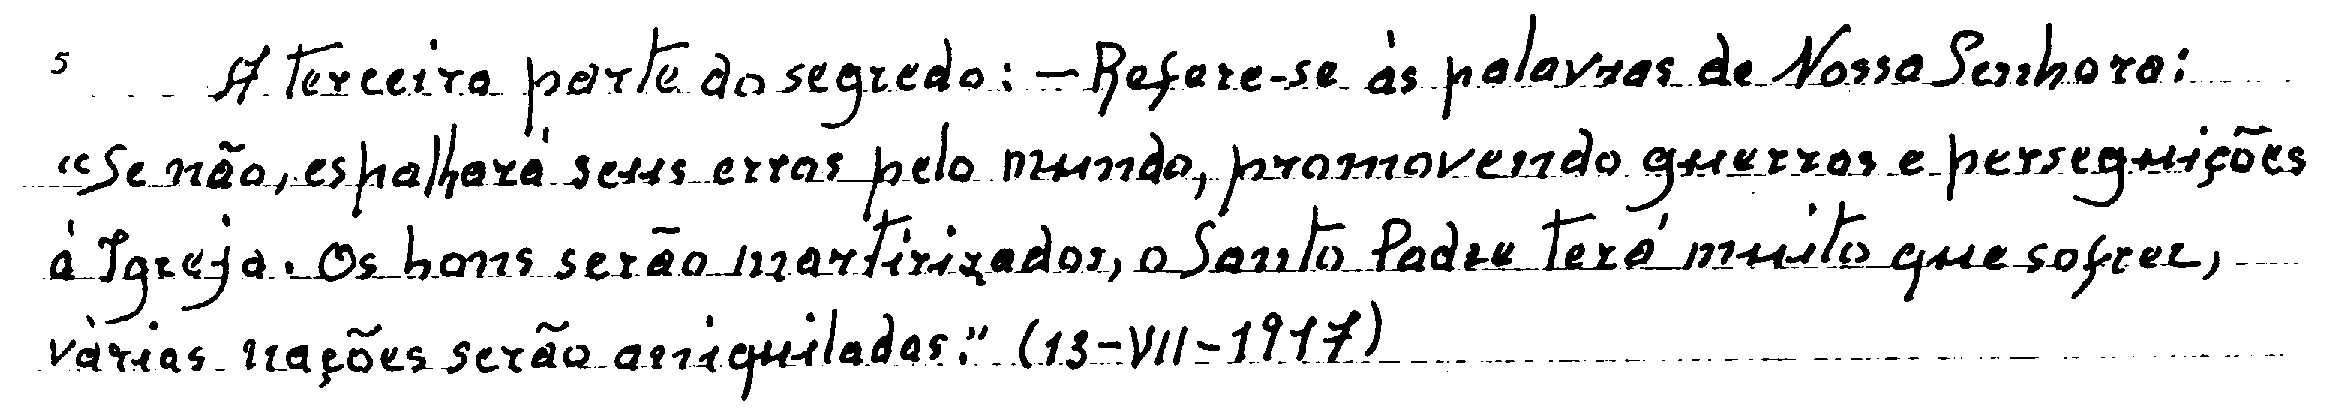 5 A terceira parte do segredo: – Refere-se às palavras de Nossa Senhora:
“Se não, espalhará seus erros pelo mundo, promovendo guerras e perseguições
á Igreja. Os bons serão martirizados, o Santo Padre terá muito que sofrer,
várias nações serão aniquiladas.” (13-VII-1917)